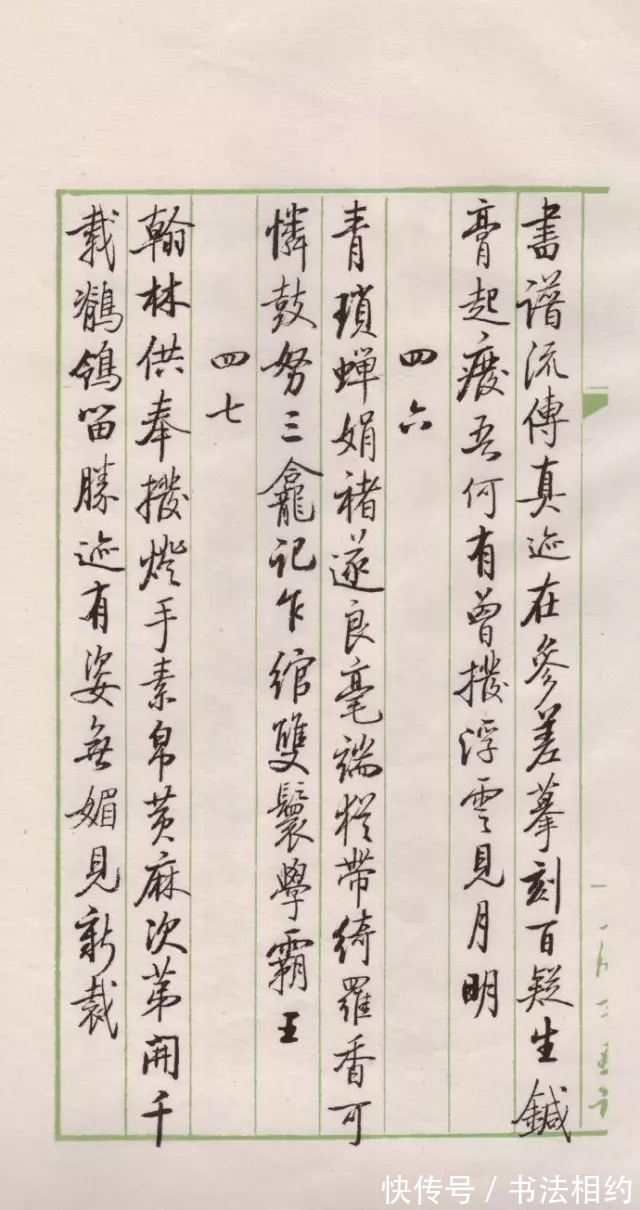 書谱流傳真迹在參差摹刻百疑生鍼
膏起癈吾何有曾撥浮雲見月明
四六
青瑣蝉娟褚遂良毫端猶带绮羅香可
憐鼓努三龕记乍绾雙鬟學霸王
四七
翰林供奉撥燈手素帛黄麻次苐開千
载鶺鴒留勝迹有姿無媚見新裁
快传号/书法相约